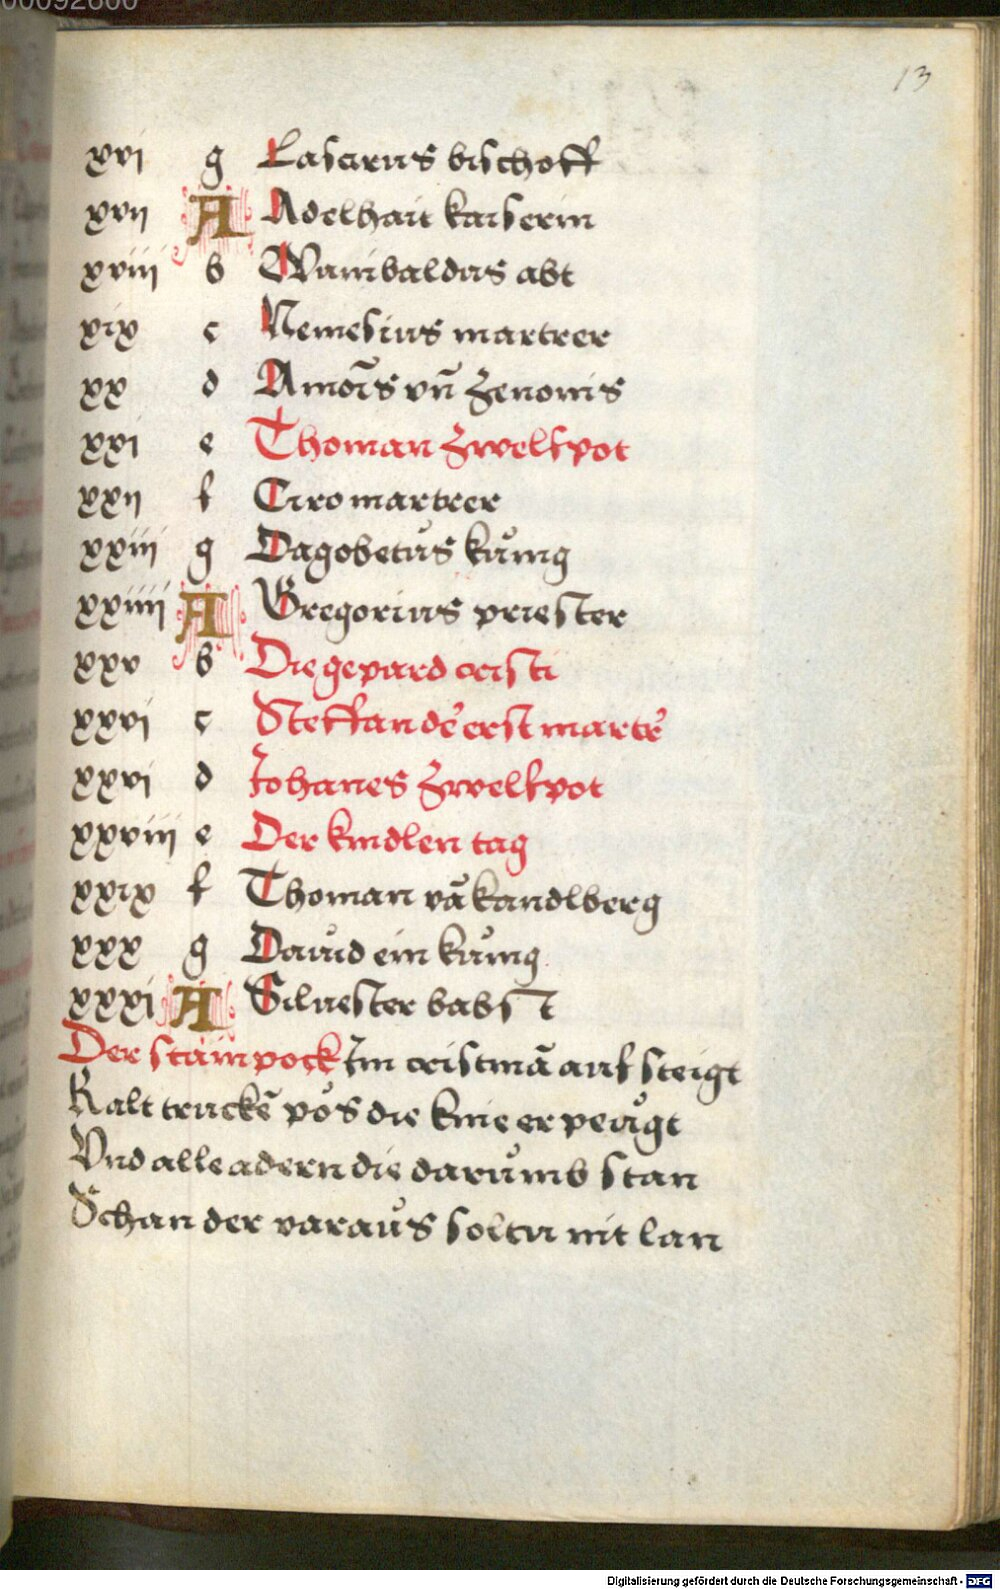 00092600
13
xvi g Lasarus bischoff
xvii A Adelhait kaiserin
xviii b Wunibaldus abt
xix c Nemesius martrer
xx d Amōis vn̄ Zenonis
xxi e Thoman zwelfpot
xxii f Ciro martrer
xxiii g Dagobetus kůnig
xxiiii A Gregorius priester
xxv b Die gepard cristi
xxvi c Steffan de᷑ erst martr᷑
xxvi d Johanes zwelfpot
xxviii e Der kindlen tag
xxix f Thoman vā kandlberg
xxx g Dauid ein kůnig
xxxi A Siluester babst
Der stainpock Im cristmā auf steigt
Kalt truckē pös die knie er peugt
Vnd alle adern die darumb stan
Schan der varaus soltu nit lan
Digitalisierung gefördert durch die Deutsche Forschungsgemeinschaft - DFG